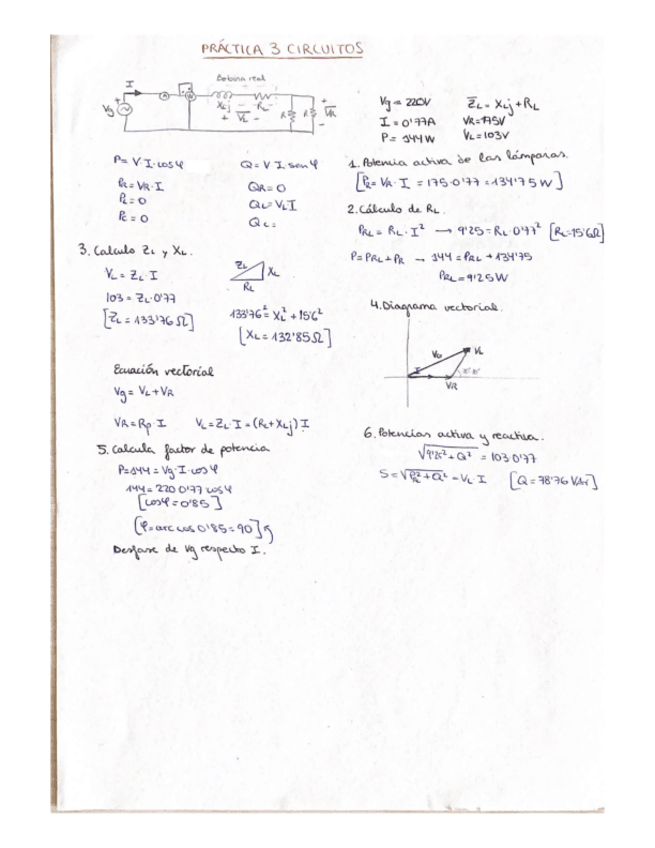 PRÁCTICA 3 CIRCUITOS
Bobina real
I
Vg
XLj RL
+ VL -
R R VR
Vg = 220V
I = 0'77A
P = 144W
Z̄L = XLj + RL
VR = 175V
VL = 103V
P = V·I·cosφ
PR = VR·I
PL = 0
PC = 0
Q = V·I·senφ
QR = 0
QL = VL I
QC =
1. Potencia activa de las lámparas.
[PR = VR·I = 175·0'77 = 134'75W]
2. Cálculo de RL.
PRL = RL·I² → 9'25 = RL·0'77² [RL = 15'6Ω]
P = PRL + PR → 144 = PRL + 134'75
PRL = 9'25W
3. Calculo ZL y XL.
VL = ZL·I
103 = ZL·0'77
[ZL = 133'76Ω]
ZL XL
RL
133'76² = XL² + 15'6²
[XL = 132'85Ω]
4. Diagrama vectorial.
VG VL
I
VR
Ecuación vectorial
Vg = VL + VR
VR = Rp·I VL = ZL·I = (RL + XLj) I
5. Calcula factor de potencia
P = 144 = Vg·I·cosφ
144 = 220·0'77 cosφ
[cosφ = 0'85]
[φ = arc cos 0'85 = 90]
Desfase de Vg respecto I.
6. Potencias activa y reactiva.
√9'25² + Q² = 103·0'77
S = √PRL² + Q² = VL·I [Q = 78'76 VAr]